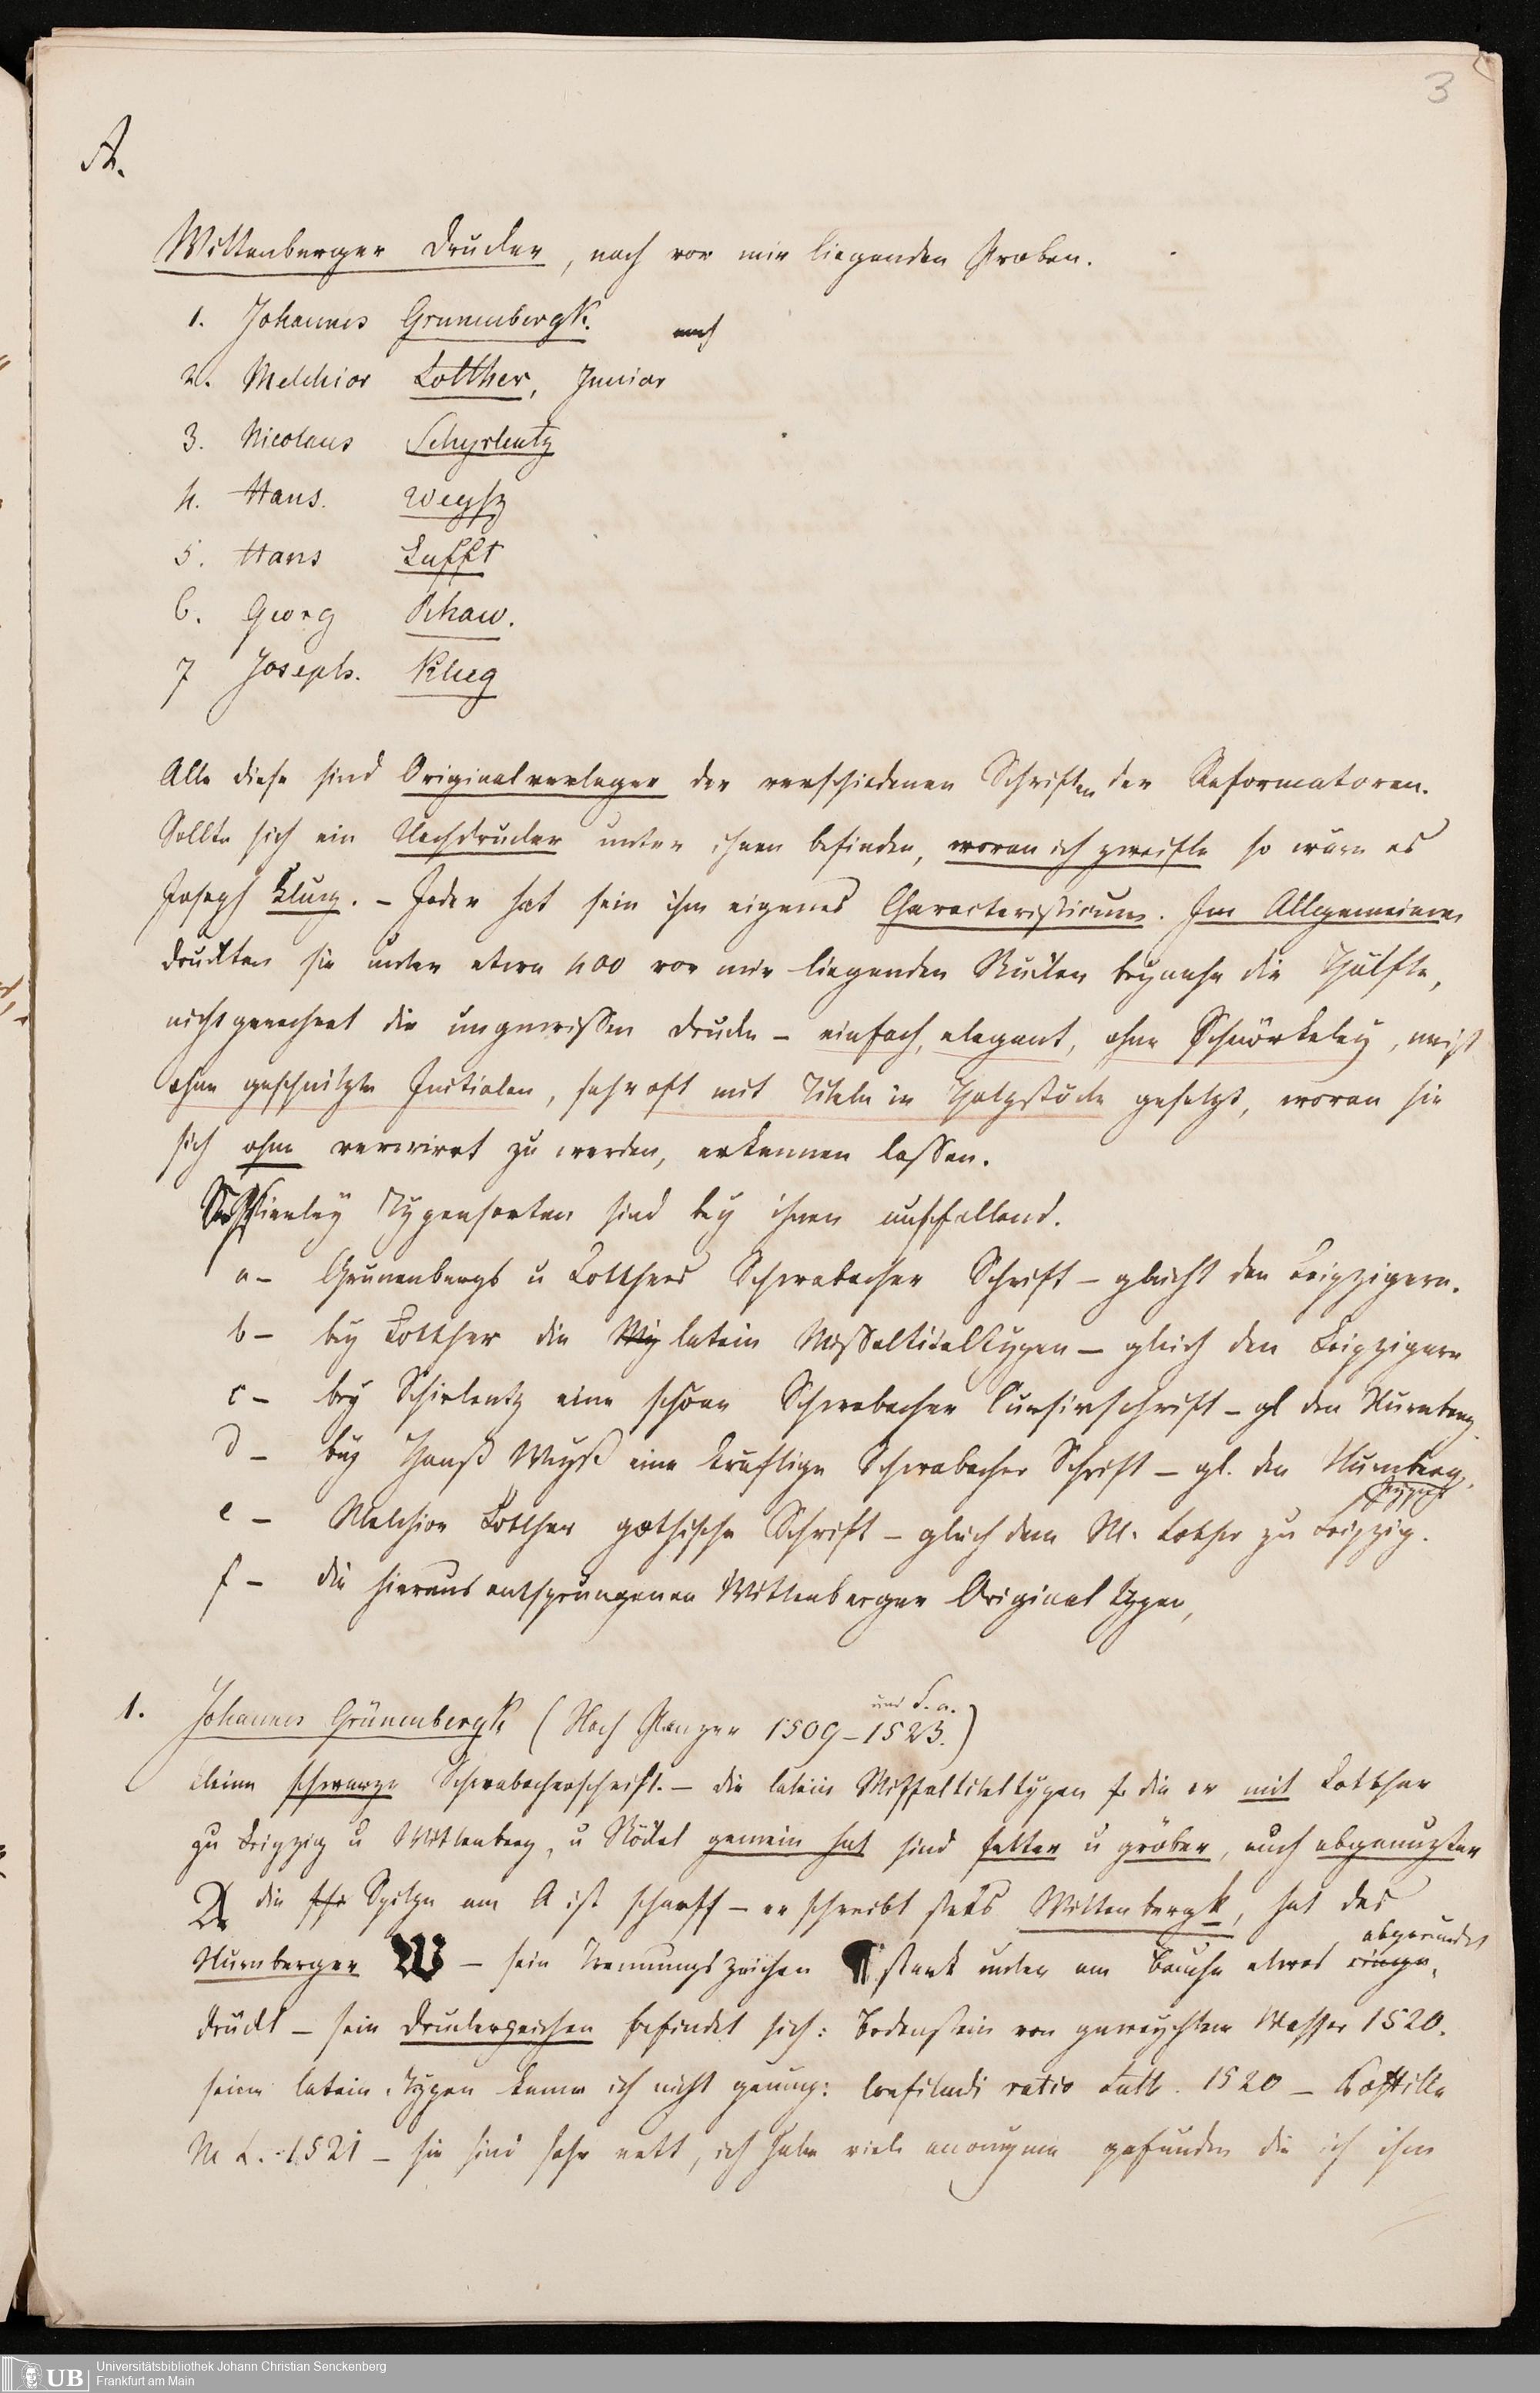 3
A.
Wittenberger Drucker, nach vor mir liegenden Proben.
1. Johannes Grunenbergk.
2. Melchior Lotther, Junior
3. Nicolaus Schyrlentz
4. Hans. Weysz
5. Hans Lufft
6. Georg Rhaw.
7 Joseph. Klug
Alle diese sind Originalverleger der verschiedenen Schriften der Reformatoren.
Sollte sich ein Nachdrucker unter ihnen befinden, woran ich zweifle so wäre es
Joseph Klug. – Jeder hat sein ihm eigenes Characteristicum. Im Allgemeinen
druckten sie unter etwa 400 vor mir liegenden Stücken beynahe die Hälfte,
nicht gerechnet die ungewissen Drucke – einfach, elegant, ohne Schnörkeley, meist
ohne geschnitzte Initialen, sehr oft mit Titeln in Holzstöcke gesetzt, woran sie
sich ohne verwirrt zu werden, erkennen lassen.
Typensorten sind bey ihnen auffallend.
a – Grunenbergs u Lotthers Schwabacher Schrift – gleicht den Leipzigern.
b – bey Lotther die latein Missaltiteltypen – gleich den Leipzigern
c – bey Schirlentz eine schöne Schwabacher Cursivschrift – gl den Nurnberg.
d – bey Hanß Weyß eine kräftige Schwabacher Schrift – gl. den Nurnberg.
e – Melchior Lotther gothische Schrift – gleich dem M. Lother zu Leipzig.
f – die hieraus entsprungenen Wittenberger Original Typen,
1. Johannes Grünenbergk (Nach Panzer 1509–1523. und S. a.)
kleine schwarze Schwabacherschrift. – die latein Missaltiteltypen die er mit Lotther
zu Leipzig u Wittenberg, u Stöckel gemein hat sind fetter u gröber, auch abgenutzter
die Spitze am A ist scharff – er schreibt stets Wittenbergk, hat das
Nurnberger W – sein Trennungszeichen ¶ stark unten am Bauche etwas abgerundet
drückt – sein Druckerzeichen befindet sich: Bodenstein von geweychtem Wasser 1520.
seine latein. Typen kenne ich nicht genug: Confitendi ratio Luth. 1520 – Postille
M L. 1521 – sie sind sehr nett, ich habe viele anonyme gefunden die ich ihm
Universitätsbibliothek Johann Christian Senckenberg
Frankfurt am Main
UB